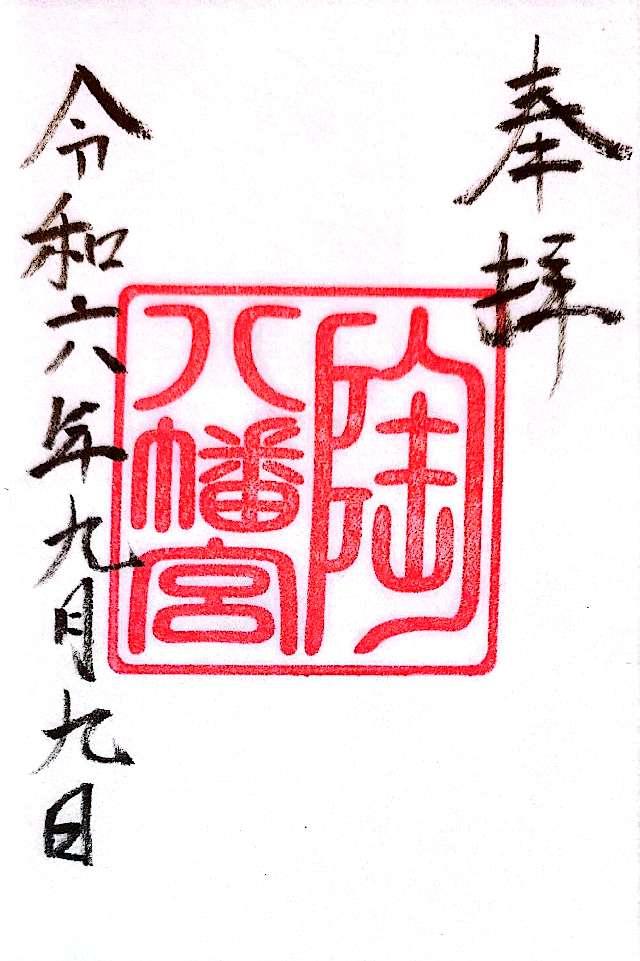 奉拝
陶
八幡宮
令和六年九月九日